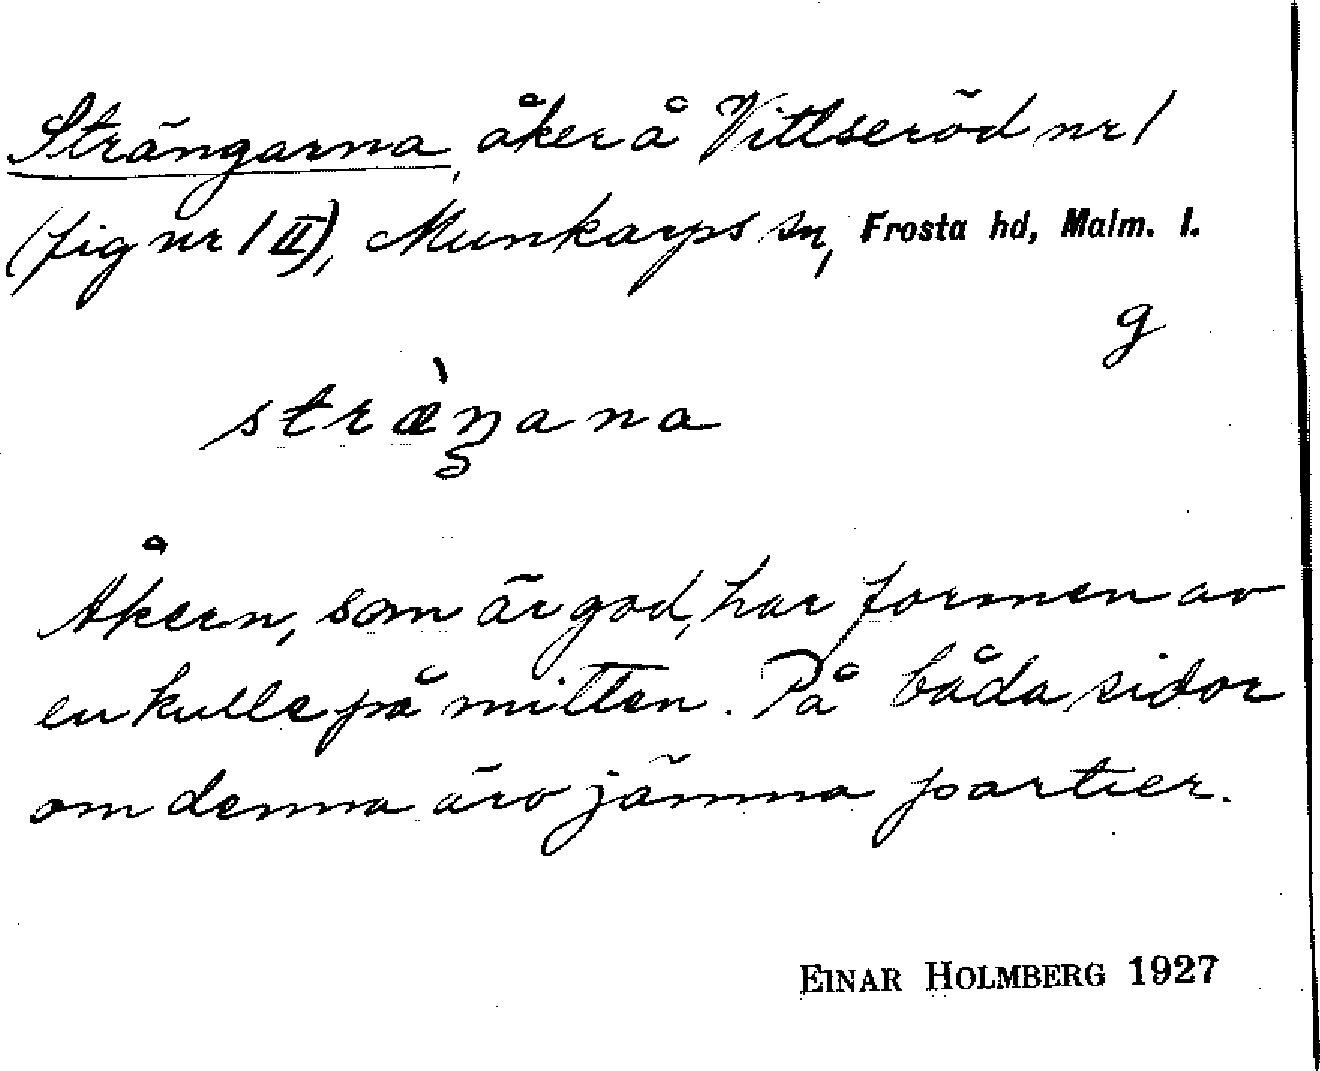 Strängarna, åker å Vittseröd nr 1
(fig nr 1 II), Munkarps sn, Frosta hd, Malm. l.
g
stræ̀ŋana
Åkern, som är god, har formen av
en kulle på mitten. På båda sidor
om denna äro jämna partier.
EINAR HOLMBERG 1927